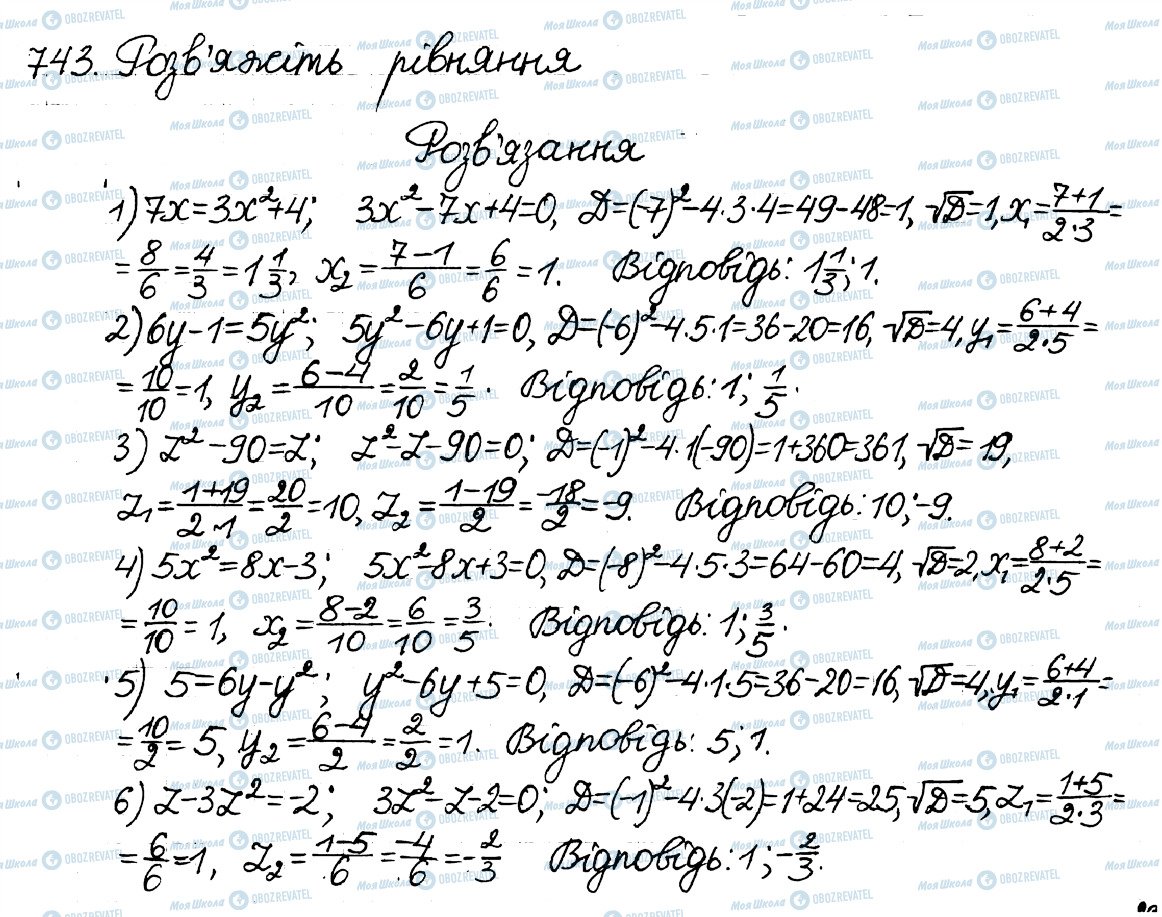 743. Розв'яжіть рівняння
Розв'язання
1) 7x=3x²+4; 3x²-7x+4=0, D=(-7)²-4·3·4=49-48=1, √D=1, x₁=(7+1)/(2·3)=
=8/6=4/3=1 1/3, x₂=(7-1)/6=6/6=1. Відповідь: 1 1/3; 1.
2) 6y-1=5y²; 5y²-6y+1=0, D=(-6)²-4·5·1=36-20=16, √D=4, y₁=(6+4)/(2·5)=
=10/10=1, y₂=(6-4)/10=2/10=1/5. Відповідь: 1; 1/5.
3) z²-90=z; z²-z-90=0; D=(-1)²-4·1(-90)=1+360=361, √D=19,
z₁=(1+19)/(2·1)=20/2=10, z₂=(1-19)/2=-18/2=-9. Відповідь: 10; -9.
4) 5x²=8x-3; 5x²-8x+3=0, D=(-8)²-4·5·3=64-60=4, √D=2, x₁=(8+2)/(2·5)=
=10/10=1, x₂=(8-2)/10=6/10=3/5. Відповідь: 1; 3/5.
5) 5=6y-y²; y²-6y+5=0, D=(-6)²-4·1·5=36-20=16, √D=4, y₁=(6+4)/(2·1)=
=10/2=5, y₂=(6-4)/2=2/2=1. Відповідь: 5; 1.
6) z-3z²=-2; 3z²-z-2=0; D=(-1)²-4·3(-2)=1+24=25, √D=5, z₁=(1+5)/(2·3)=
=6/6=1, z₂=(1-5)/6=-4/6=-2/3 Відповідь: 1; -2/3.
МояШкола OBOZREVATEL